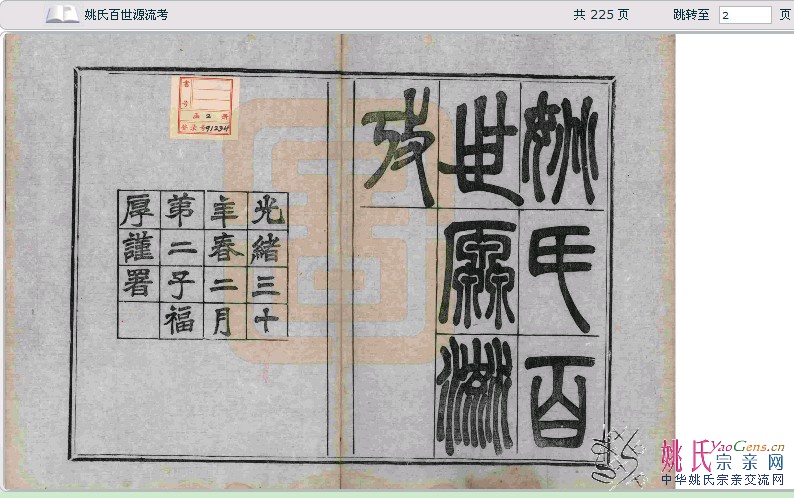 姚氏百世源流考 共 225 页 跳转至 2 页
姚氏百
世厵流
攷
光緒三十
年春二月
苐二子福
厚謹署
2 冊
91234
姚氏宗亲网 YaoGens.cn
中华姚氏宗亲交流网